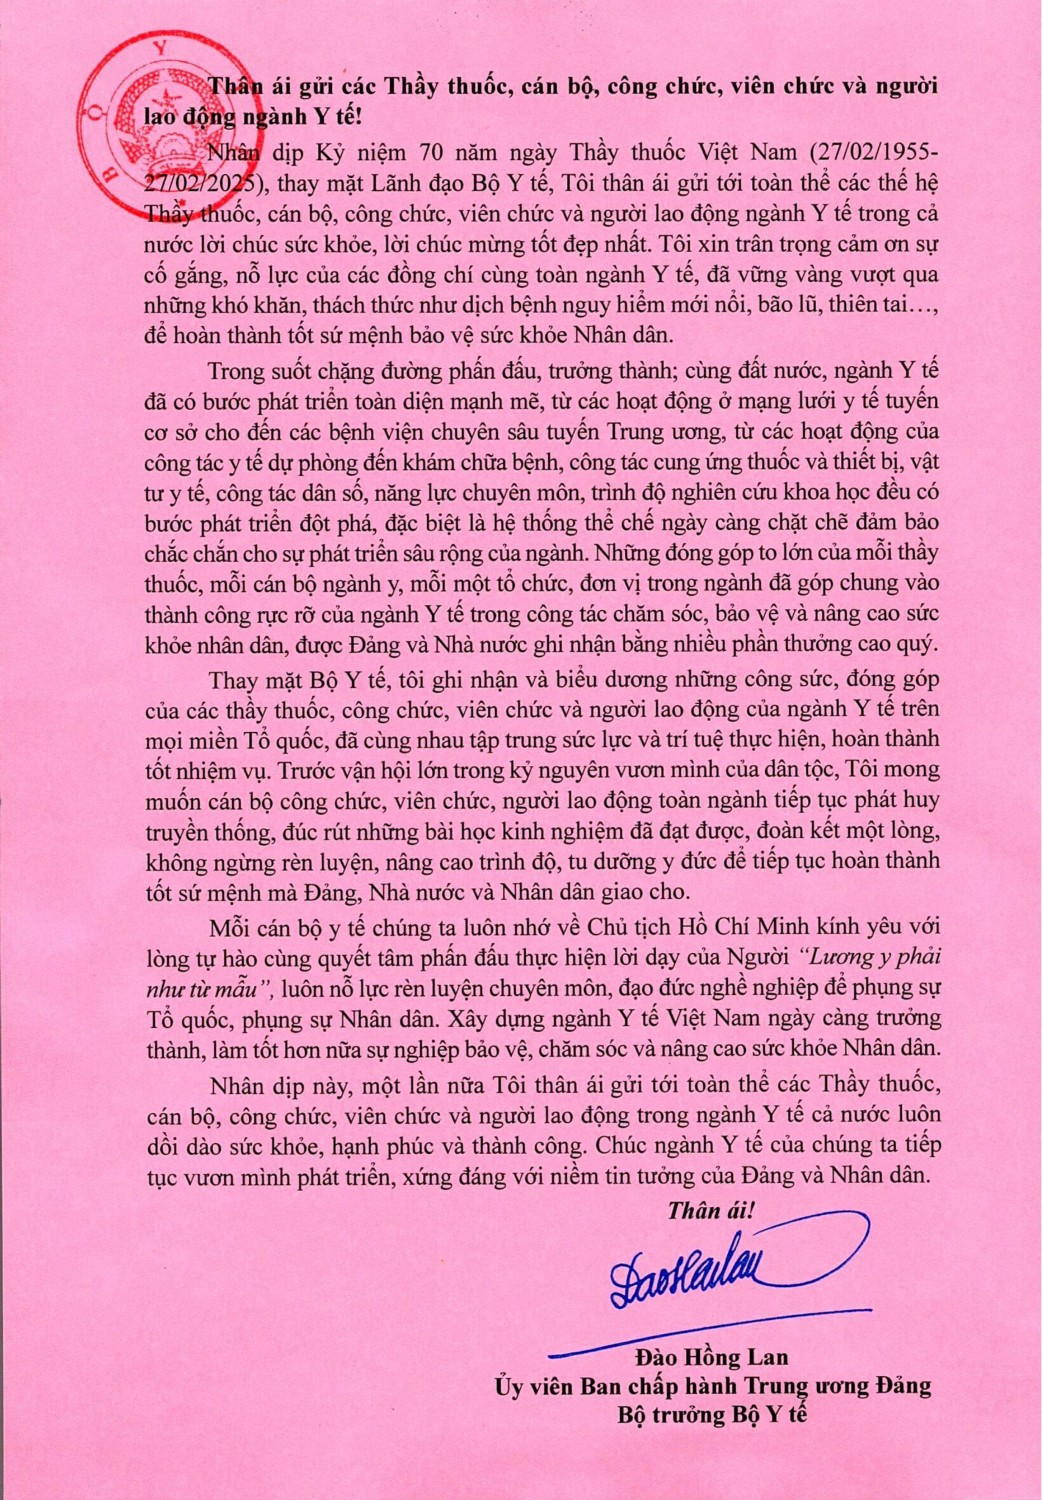 BỘ Y
Thân ái gửi các Thầy thuốc, cán bộ, công chức, viên chức và người
lao động ngành Y tế!
Nhân dịp Kỷ niệm 70 năm ngày Thầy thuốc Việt Nam (27/02/1955-
27/02/2025), thay mặt Lãnh đạo Bộ Y tế, Tôi thân ái gửi tới toàn thể các thế hệ
Thầy thuốc, cán bộ, công chức, viên chức và người lao động ngành Y tế trong cả
nước lời chúc sức khỏe, lời chúc mừng tốt đẹp nhất. Tôi xin trân trọng cảm ơn sự
cố gắng, nỗ lực của các đồng chí cùng toàn ngành Y tế, đã vững vàng vượt qua
những khó khăn, thách thức như dịch bệnh nguy hiểm mới nổi, bão lũ, thiên tai…,
để hoàn thành tốt sứ mệnh bảo vệ sức khỏe Nhân dân.
Trong suốt chặng đường phấn đấu, trưởng thành; cùng đất nước, ngành Y tế
đã có bước phát triển toàn diện mạnh mẽ, từ các hoạt động ở mạng lưới y tế tuyến
cơ sở cho đến các bệnh viện chuyên sâu tuyến Trung ương, từ các hoạt động của
công tác y tế dự phòng đến khám chữa bệnh, công tác cung ứng thuốc và thiết bị, vật
tư y tế, công tác dân số, năng lực chuyên môn, trình độ nghiên cứu khoa học đều có
bước phát triển đột phá, đặc biệt là hệ thống thể chế ngày càng chặt chẽ đảm bảo
chắc chắn cho sự phát triển sâu rộng của ngành. Những đóng góp to lớn của mỗi thầy
thuốc, mỗi cán bộ ngành y, mỗi một tổ chức, đơn vị trong ngành đã góp chung vào
thành công rực rỡ của ngành Y tế trong công tác chăm sóc, bảo vệ và nâng cao sức
khỏe nhân dân, được Đảng và Nhà nước ghi nhận bằng nhiều phần thưởng cao quý.
Thay mặt Bộ Y tế, tôi ghi nhận và biểu dương những công sức, đóng góp
của các thầy thuốc, công chức, viên chức và người lao động của ngành Y tế trên
mọi miền Tổ quốc, đã cùng nhau tập trung sức lực và trí tuệ thực hiện, hoàn thành
tốt nhiệm vụ. Trước vận hội lớn trong kỷ nguyên vươn mình của dân tộc, Tôi mong
muốn cán bộ công chức, viên chức, người lao động toàn ngành tiếp tục phát huy
truyền thống, đúc rút những bài học kinh nghiệm đã đạt được, đoàn kết một lòng,
không ngừng rèn luyện, nâng cao trình độ, tu dưỡng y đức để tiếp tục hoàn thành
tốt sứ mệnh mà Đảng, Nhà nước và Nhân dân giao cho.
Mỗi cán bộ y tế chúng ta luôn nhớ về Chủ tịch Hồ Chí Minh kính yêu với
lòng tự hào cùng quyết tâm phấn đấu thực hiện lời dạy của Người “Lương y phải
như từ mẫu”, luôn nỗ lực rèn luyện chuyên môn, đạo đức nghề nghiệp để phụng sự
Tổ quốc, phụng sự Nhân dân. Xây dựng ngành Y tế Việt Nam ngày càng trưởng
thành, làm tốt hơn nữa sự nghiệp bảo vệ, chăm sóc và nâng cao sức khỏe Nhân dân.
Nhân dịp này, một lần nữa Tôi thân ái gửi tới toàn thể các Thầy thuốc,
cán bộ, công chức, viên chức và người lao động trong ngành Y tế cả nước luôn
dồi dào sức khỏe, hạnh phúc và thành công. Chúc ngành Y tế của chúng ta tiếp
tục vươn mình phát triển, xứng đáng với niềm tin tưởng của Đảng và Nhân dân.
Thân ái!
DaoHaulau
Đào Hồng Lan
Ủy viên Ban chấp hành Trung ương Đảng
Bộ trưởng Bộ Y tế